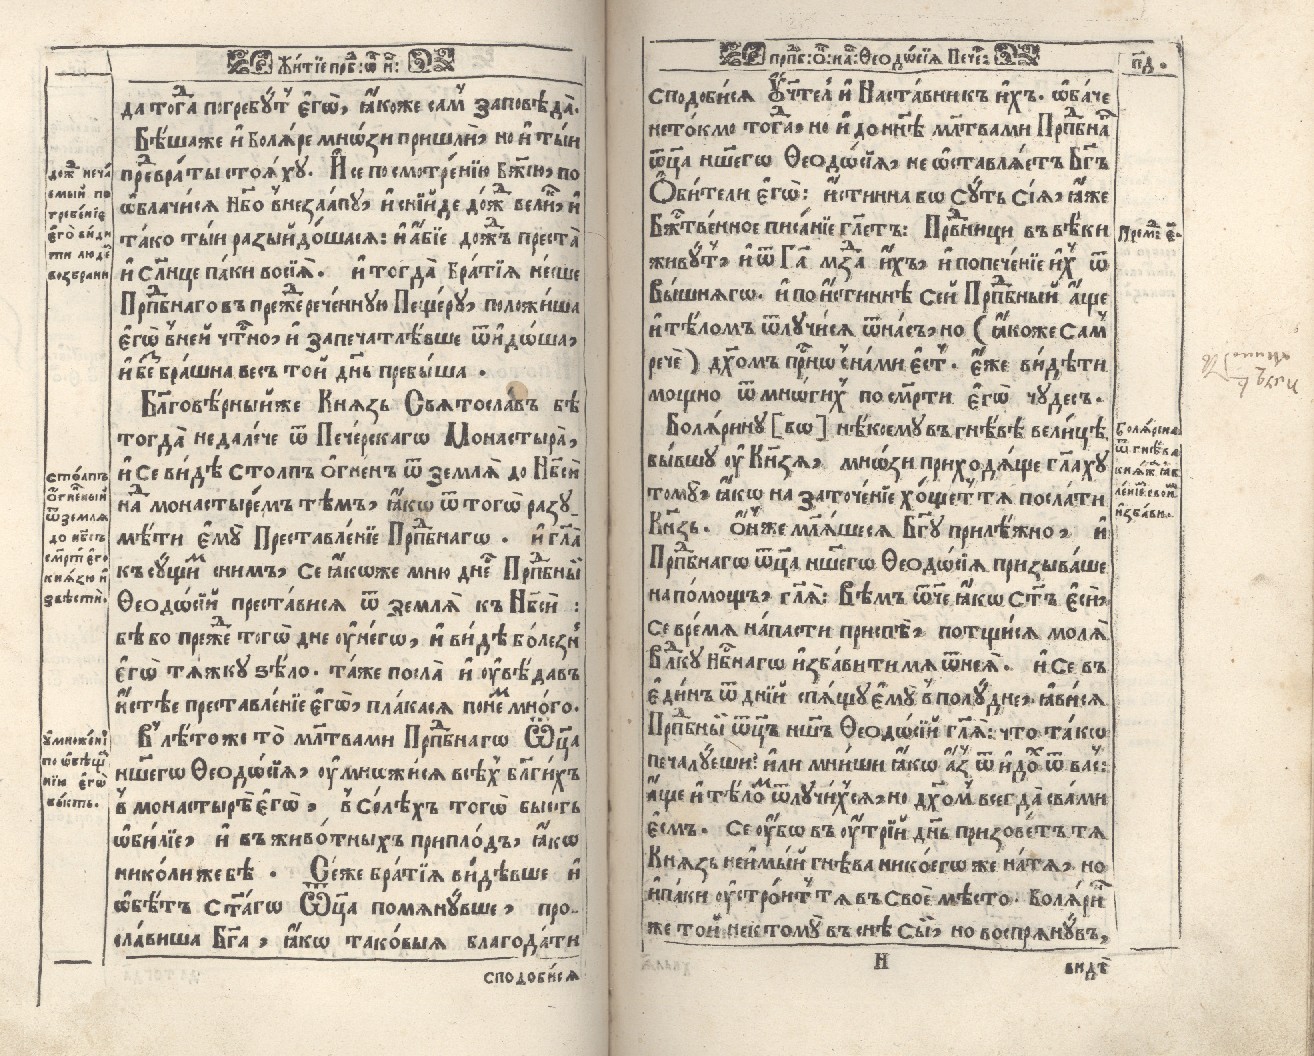 Житїе прпб: ѿц н:
да тогда погребут̾ єгѡ̀, ꙗкоже сам̾ заповѣда̀.
Бѣша же и҆ Боля́ре мнѡ́зи пришлѝ, но и҆ ты́и
пред̾ вра́ты стоѧ́ху. И҆ се по смотре́нїю Бж҃їю, по
ѡблачи́сѧ Нб҃о внеза́апу, и҆ сни́йде до́ждь вели́й, и҆
та́ко ты́и разыйдо́шасѧ: и҆ а҆́бїе до́ждь преста̀
и҆ сл҃нце па́ки восїѧ̀. и҆ тогда̀ Бра́тїѧ не́сше
Прпбнаго въ прежерече́нную Пеще́ру, положи́ша
єгѡ̀ в̾ не́й чт҃но, и҆ запечатлѣ́вше ѿидо́ша,
и҆ без̾ бра́шна весь то́й дн҃ь пребы́ша.
Бл҃говѣ́рный же Кнѧзь Свѧтосла́въ бѣ
тогда̀ недале́че ѿ Пече́рскагѡ Монастырѧ̀,
и҆ се ви́дѣ столпъ о҆́гненъ ѿ землѧ̀ до Нб҃сѝ
над̾ монастыре́мъ тѣмъ, ꙗ҆́кѡ ѿ тогѡ̀ разу_
мѣ́ти є҆мꙋ̀ Преставле́нїе Прпбнагѡ. и҆ гл҃а
къ су́щим̾ с ни́мъ, Се ꙗ҆́кѡже мню дне́сь Прпбный
Ѳеодо́сїй преста́висѧ ѿ землѧ̀ къ Нб҃сѝ:
бѣ бо пре́жде тогѡ̀ дне у҆ негѡ̀, и҆ ви́дѣ бо́лезн̾
є҆гѡ̀ тѧ́жку зѣло̀. та́же посла̀ и҆ у҆вѣ́давъ
и҆́стѣе преставле́нїе є҆гѡ̀, пла́касѧ по нем̾ мно́го.
В̾ лѣ́тоже то̀ мл҃твами Прпбнагѡ Ѿц҃а
нш҃егѡ Ѳеодо́сїѧ, у҆мно́жисѧ всѣ́х̾ бл҃ги́хъ
в̾ монастырѣ̀ є҆гѡ̀, в̾ Се́лѣхъ тогѡ̀ бысть
ѡби́лїе, и҆ въ живо́тныхъ припло́дъ, ꙗ҆́кѡ
николи́же бѣ̀. Сѐже бра́тїѧ ви́дѣвше и҆
ѡбѣ́тъ ст҃а́гѡ Ѿц҃а помѧну́вше, про-
сла́виша Бг҃а, ꙗ҆́кѡ таковы́ѧ благода́ти
сподо́бисѧ
дождь неча́
емый по
єго̀ ви́ди
ти люде̑
возбрани
сто́лпъ
о҆́гненый
ѿ землѧ
до нб҃съ
смр҃ть є҆го
кнѧзю и҆
звѣстѝ.
у҆множе́н̾
по ѡбѣщ̾
нїю є҆гѡ̀
бысть.
прпб: ѿ: на: Ѳеодѡ́сїѧ Пече:
п҃д.
сподо́бисѧ Ѹ҆чт҃ель и҆ Наста́вникъ и҆́хъ. ѡба́че
нето́кмо тогда, но и҆ до нн҃ѣ мл҃твами Прпбнагѡ
ѿц҃а нш҃егѡ Ѳеодѡ́сїѧ, не ѡставлѧ́етъ Бг҃ъ
О҆би́тели є҆гѡ̀: и҆́стинна бо сꙋть Сїѧ̀, ꙗ҆́же
Бж҃тве́нное писа́нїе гл҃етъ: Прпбници въ вѣки
живꙋт̾, и҆ ѿ Гд҃а мзда и҆́хъ, и҆ попече́нїе и҆́х̾ ѿ
Вы́шнѧгѡ. и҆ по и҆́стиннѣ сей Прпбный а҆́ще
и҆ тѣ́ломъ ѿлучи́сѧ ѿ на́съ, но (ꙗ҆́коже Сам̾
речѐ) дх҃омъ при́снѡ с на́ми є҆́ст̾. є҆́же ви́дѣти
мощно ѿ мно́гих̾ по см҃рти є҆гѡ̀ чудесъ.
Боля́рину [бо] нѣ́коему въ гнѣ́вѣ вели́цѣ
бы́вшу ꙋ Кн҃зѧ, мно́зи приходѧ́ще гл҃аху
томꙋ̀, ꙗ҆́кѡ на заточе́нїе хо́щет̾ тѧ посла́ти
Кн҃зь. О҆́нже молѧ́шесѧ Бг҃у прилѣ́жно, и҆
Прпбнагѡ ѿц҃а нш҃егѡ Ѳеодѡ́сїѧ призыва́ше
на по́мощь, гл҃ѧ: Вѣмъ ѿче ꙗ҆́кѡ ст҃ъ є҆сѝ,
се вре́мѧ на́пасти приспѣ̀, потщи́сѧ молѧ̀
Вл҃ку Нб҃нагѡ и҆зба́вити мѧ ѿ неѧ̀. и҆ се въ
є҆ди́нъ ѿ дни́й спѧ́щу є҆мꙋ̀ в̾ полу́дне, ꙗ҆ви́сѧ
Прпбный ѿц҃ъ нш҃ъ Ѳеодѡ́сїй гл҃ѧ: что та́кѡ
печа́луеши! и҆ли мни́ши ꙗ҆́кѡ а҆́з̾ ѿидо́х ѿ ва́с̾:
а҆́ще и҆ тѣ́лом̾ ѿлучи́хсѧ, но дх҃ом̾ всегда̀ с ва́ми
є҆смь. Се у҆́бѡ въ у҆́трїй дн҃ь призове́тъ тѧ
Кнѧзь неи҆мы́й гнѣ́ва нико́егѡ же на́ тѧ, но
и҆ па́ки ꙋстро́ит̾ тѧ въ своѐ мѣ́сто. Боля́рин̾
же той не ктому̀ въ снѣ сы́й, но воспрѧну́въ,
н҃
видѣ̀
Прем: є҃.
болѧрина
ѿ гнѣва
кнѧжа ꙗв
ле́нїе свои̑
и҆збави.